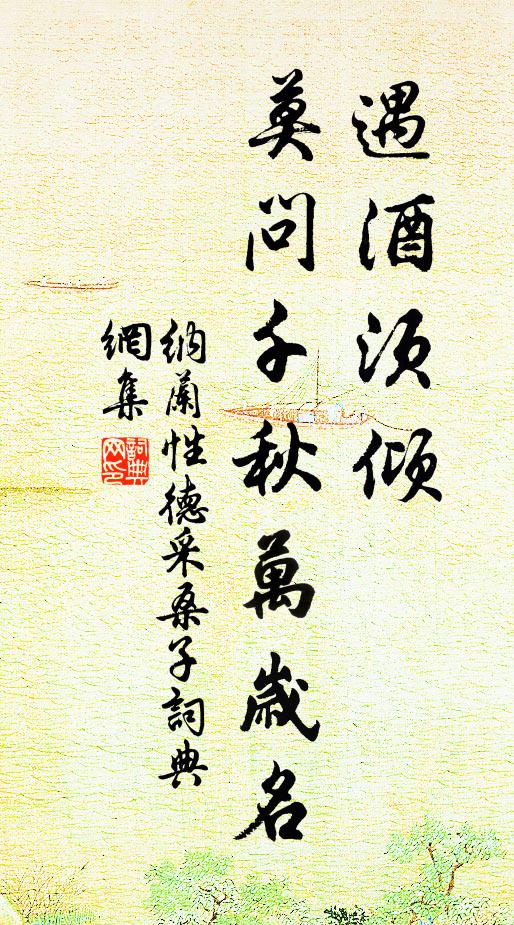 遇酒須傾
莫問千秋萬歲名
納蘭性德采桑子詞典
網集
詞典
网印